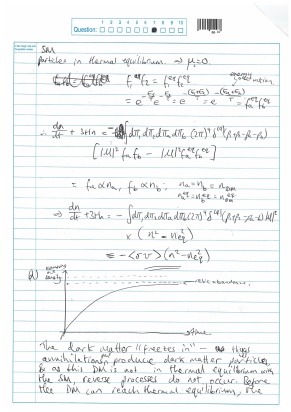 Question:
1 2 3 4 5 6 7 8 9 10
SM
particles in thermal equilibrium ⇒ μᵢ=0.
f₁^eq f₂^eq =
energy conservation
∴ dn/dt + 3Hn = - ∫dπ₁ dπ₂ dπₐ dπ_b (2π)⁴ δ⁽⁴⁾
[|M|² fₐf_b - |M|² fₐ^eq f_b^eq]
= fₐ∝nₐ, f_b∝n_b ; nₐ=n_b=n_DM
nₐ^eq=n_b^eq=n_eq
⇒ dn/dt + 3Hn = - ∫dπ₁ dπ₂ dπₐ dπ_b (2π)⁴ δ⁽⁴⁾ |M|²
× (n² - n²_eq)
≡ - <σv> (n² - n²_eq)
d)
number
density
relic abundance
time
The dark matter "freezes in" - SM
annihilations produce dark matter particles,
& as this DM is not in thermal equilibrium with
the SM, reverse processes do not occur. Before
the DM can reach thermal equilibrium, the